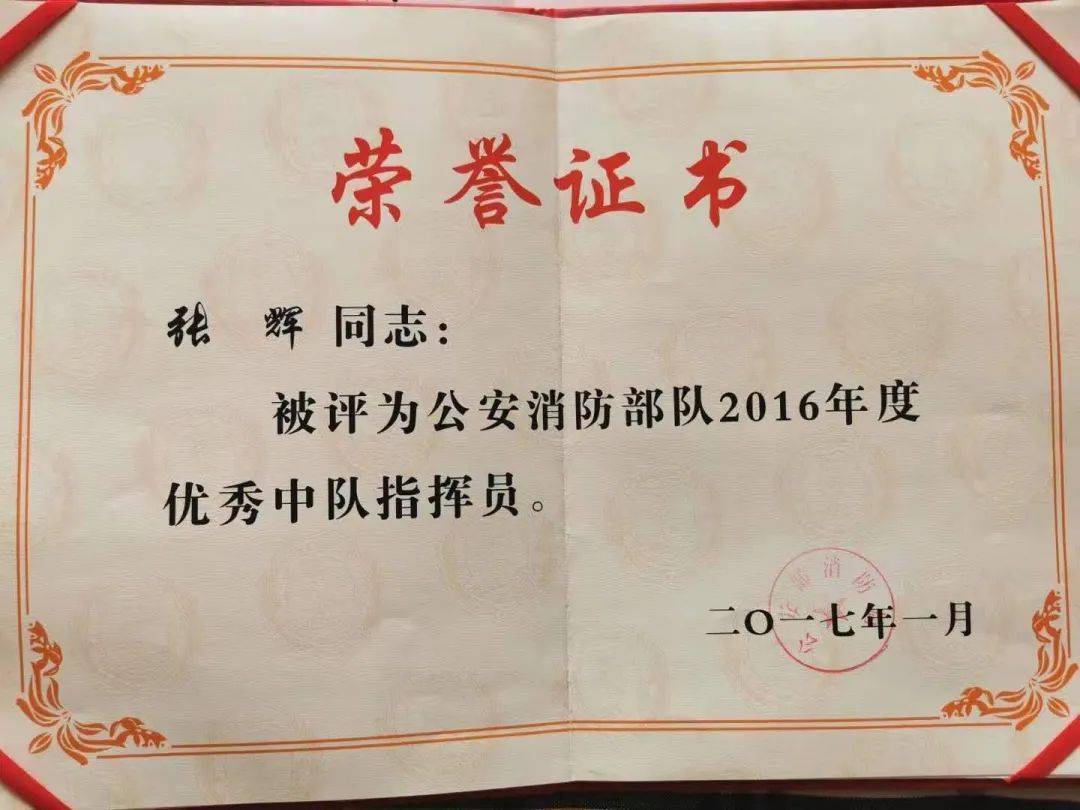 荣誉证书
张 辉 同志：
被评为公安消防部队2016年度
优秀中队指挥员。
二〇一七年一月